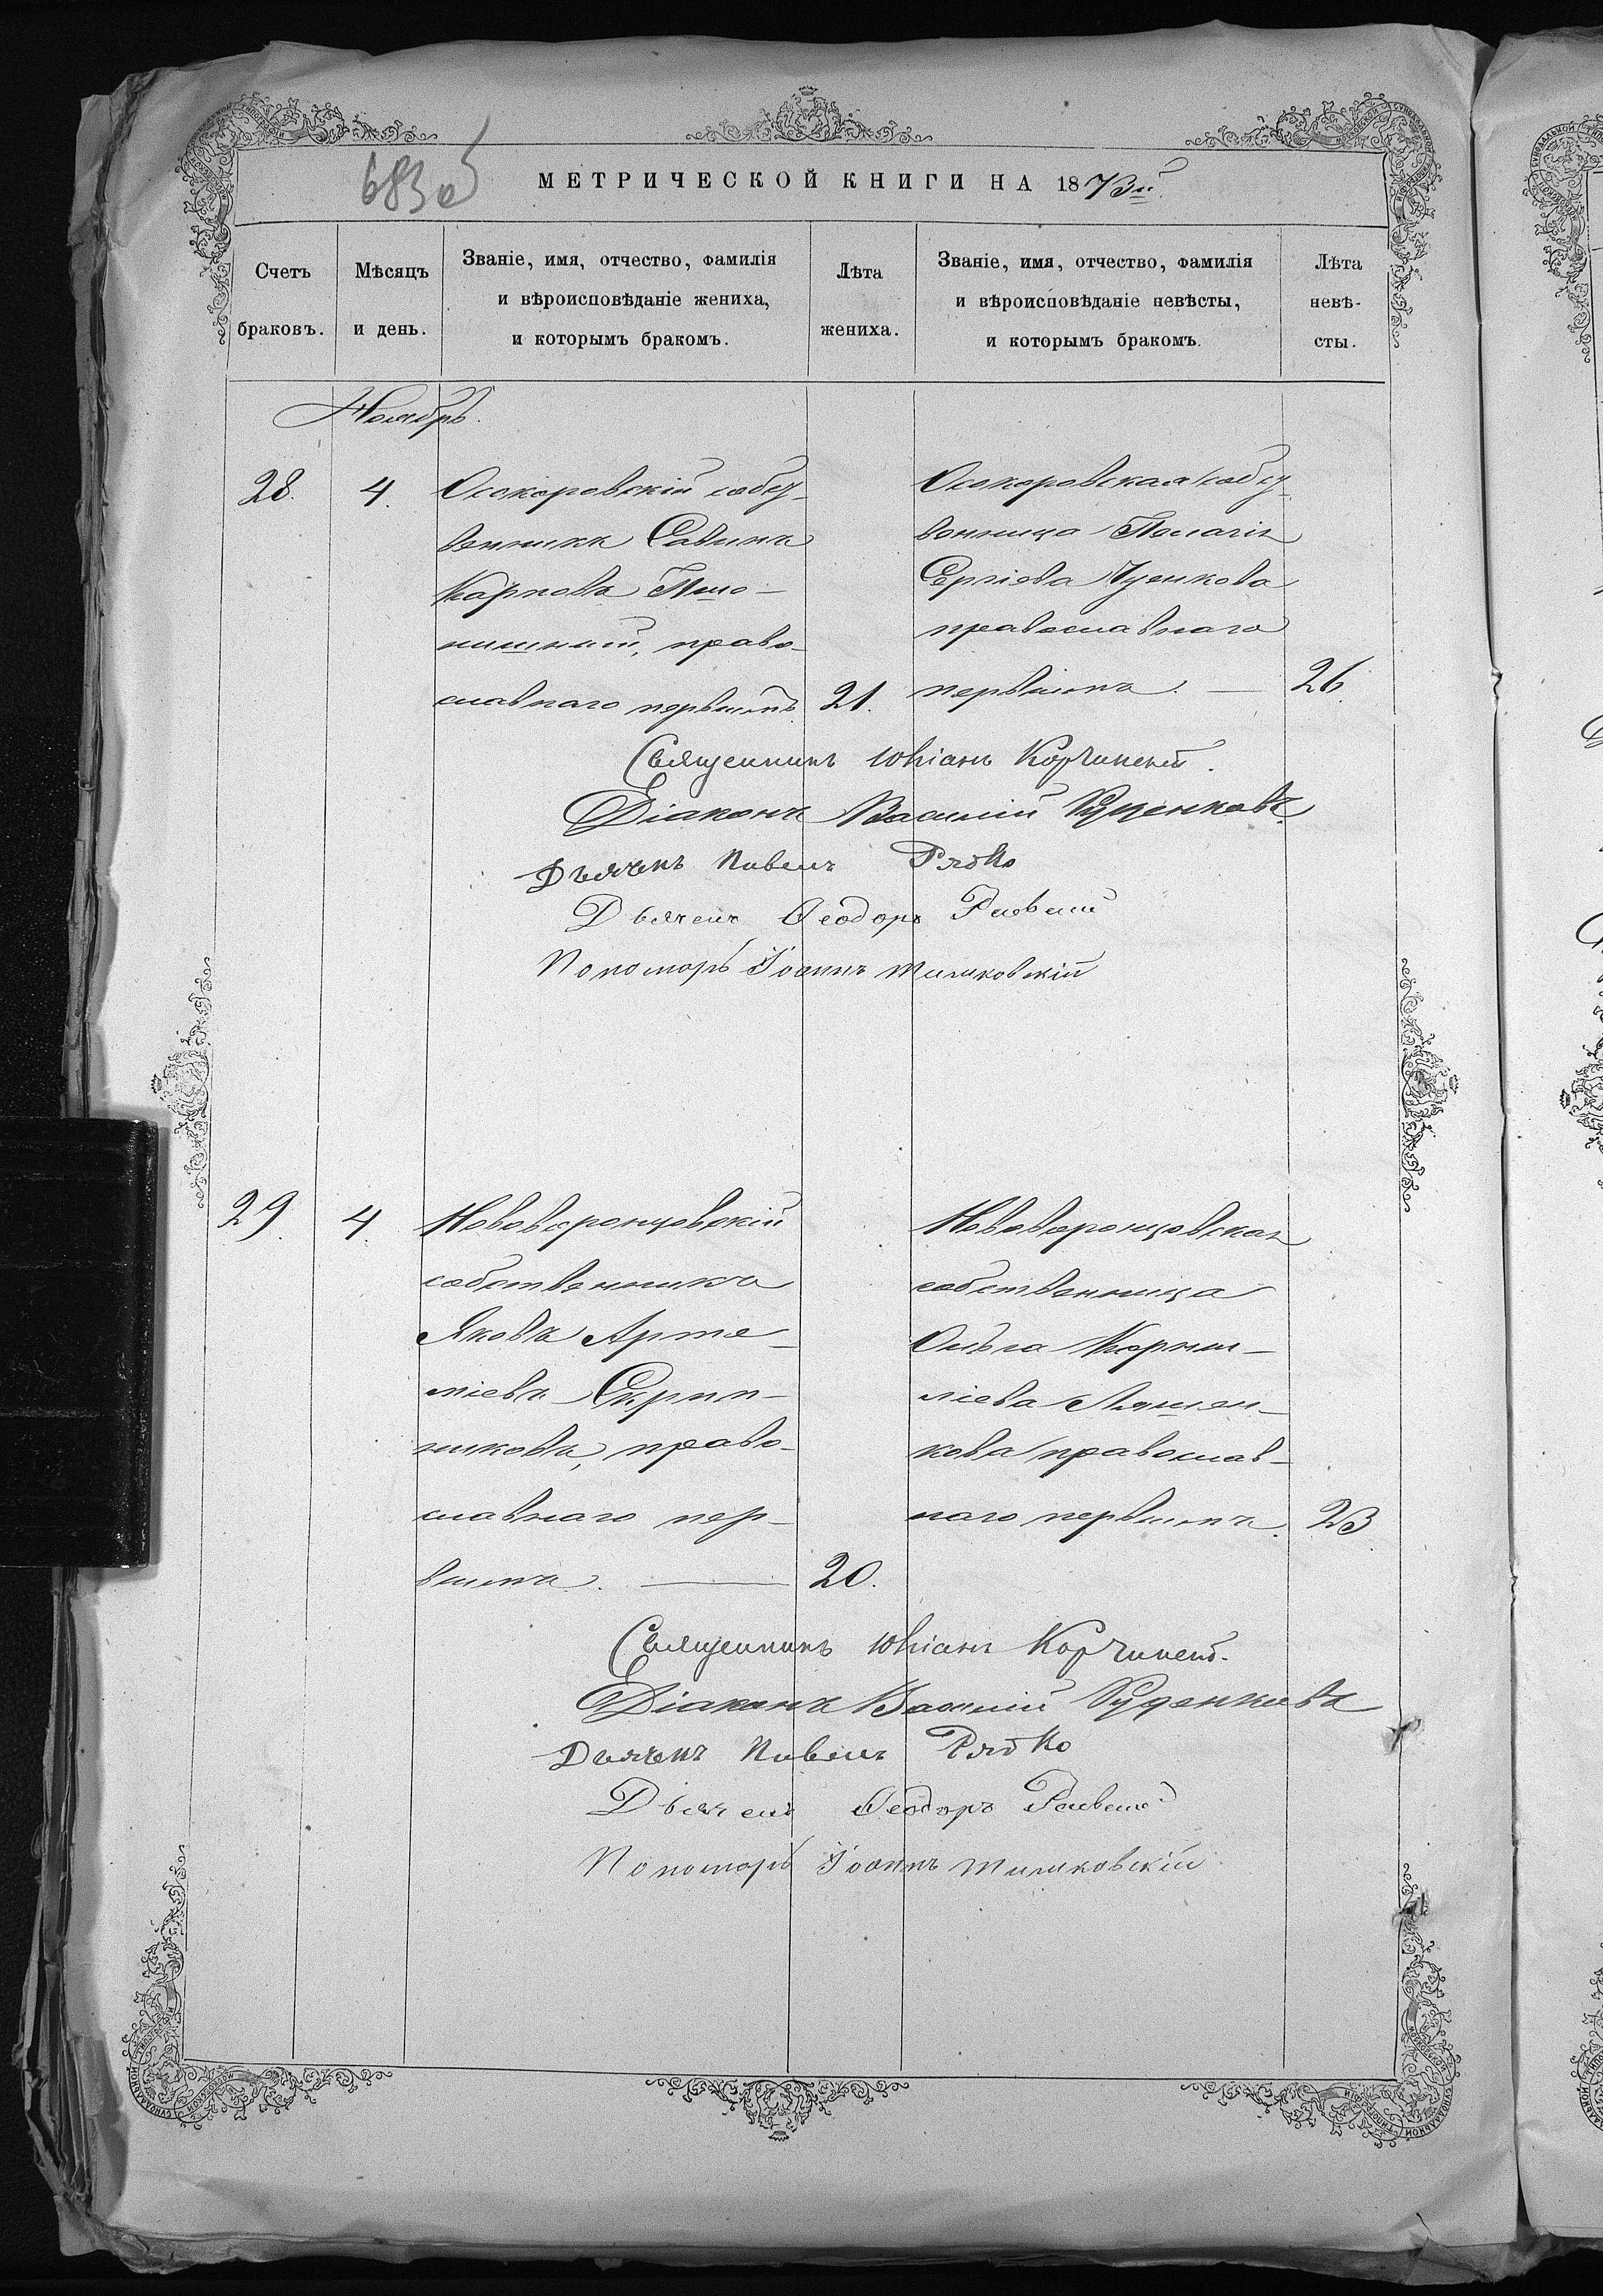 683 об
МЕТРИЧЕСКОЙ КНИГИ НА 1873й.
Счетъ браковъ.
Мѣсяцъ и день.
Званіе, имя, отчество, фамилія
и вѣроисповѣданіе жениха,
и которымъ бракомъ.
Лѣта жениха.
Званіе, имя, отчество, фамилія
и вѣроисповѣданіе невѣсты,
и которымъ бракомъ.
Лѣта невѣ-
сты.
Ноябрь.
28. 4.
Осокоровскій собст-
венникъ Савинъ
Карповъ
православнаго первымъ 21.
Осокоровская собст-
венница Пелагія
Сергіева
православнаго
первымъ. — 26
Священникъ Юліанъ Корчинскій.
Діаконъ Василій Куценковъ
Дьячекъ Павелъ Рябко
Дьячекъ Ѳеодоръ Раевскій
Пономарь Іоаннъ Тимковскій
29. 4.
Нововоронцовскій
собственникъ
Яковъ Арте-
міевъ Скрип-
никовъ, право-
славнаго пер-
вымъ. — 20.
Нововоронцовская
собственница
Ольга Корни-
ліева Ляшен-
кова православ-
наго первымъ. 23
Священникъ Юліанъ Корчинскій.
Діаконъ Василій Куценковъ
Дьячекъ Павелъ Рябко
Дьячекъ Ѳеодоръ Раевскій
Пономарь Іоаннъ Тимковскій